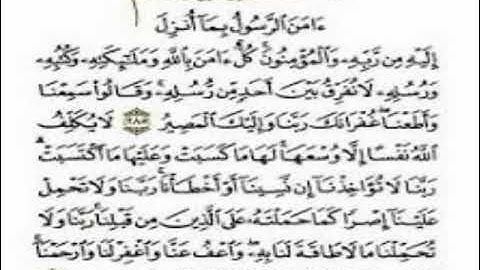 ءَامَنَ الرَّسُولُ بِمَآ أُنزِلَ
إِلَيْهِ مِن رَّبِّهِۦ وَالْمُؤْمِنُونَ ۚ كُلٌّ ءَامَنَ بِاللَّهِ وَمَلَٰٓئِكَتِهِۦ وَكُتُبِهِۦ
وَرُسُلِهِۦ لَا نُفَرِّقُ بَيْنَ أَحَدٍ مِّن رُّسُلِهِۦ ۚ وَقَالُوا۟ سَمِعْنَا
وَأَطَعْنَا ۖ غُفْرَانَكَ رَبَّنَا وَإِلَيْكَ الْمَصِيرُ ۝٢٨٥ لَا يُكَلِّفُ
اللَّهُ نَفْسًا إِلَّا وُسْعَهَا ۚ لَهَا مَا كَسَبَتْ وَعَلَيْهَا مَا اكْتَسَبَتْ ۗ
رَبَّنَا لَا تُؤَاخِذْنَآ إِن نَّسِينَآ أَوْ أَخْطَأْنَا ۚ رَبَّنَا وَلَا تَحْمِلْ
عَلَيْنَآ إِصْرًا كَمَا حَمَلْتَهُۥ عَلَى الَّذِينَ مِن قَبْلِنَا ۚ رَبَّنَا وَلَا
تُحَمِّلْنَا مَا لَا طَاقَةَ لَنَا بِهِۦ ۖ وَاعْفُ عَنَّا وَاغْفِرْ لَنَا وَارْحَمْنَآ ۚ